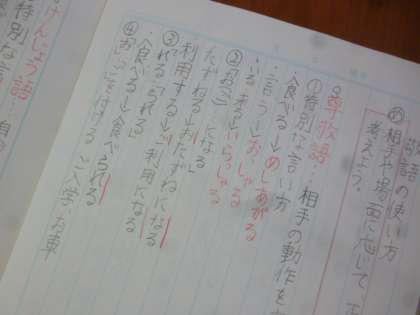 敬語の使い方
め 相手や場面に応じて、正
考えよう。
尊敬語…相手の動作を
①特別な言い方
・食べる→めしあがる
・言う→おっしゃる
・いる、来る→いらっしゃる
②「お(ご)〜になる」
たずねる→おたずねになる
利用する→ご利用になる
③「れる」「られる」
・食べる→食べられる
④「お」「ご」を付ける ご入学、お車
けんじょう語…自
特別な言